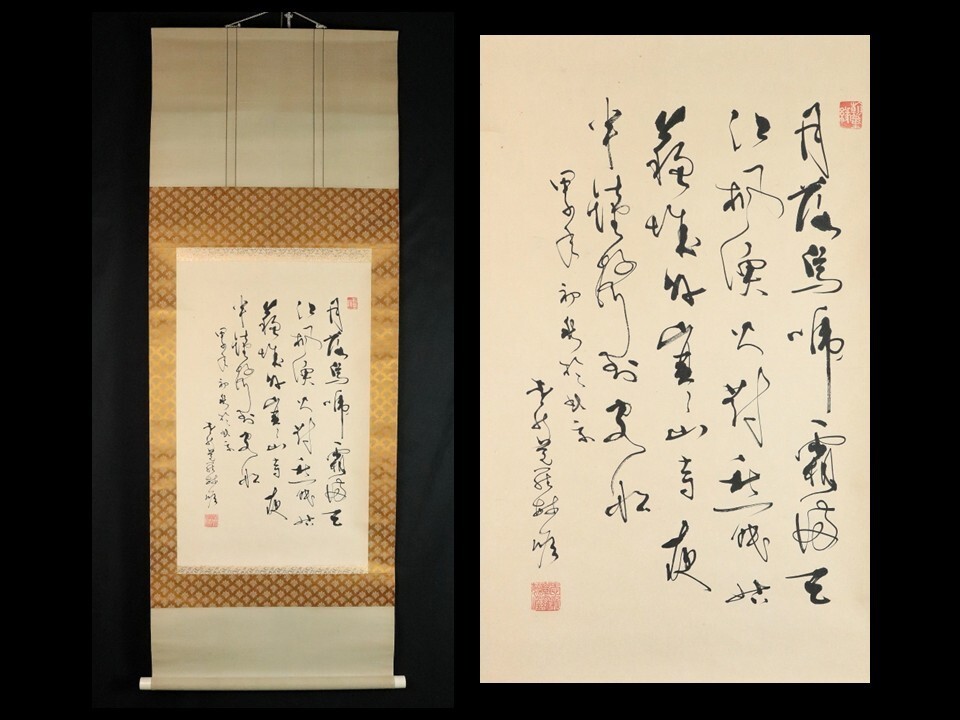 月落烏啼霜満天
江楓漁火対愁眠姑
蘇城外寒山寺夜
半鐘聲到客船
年初於